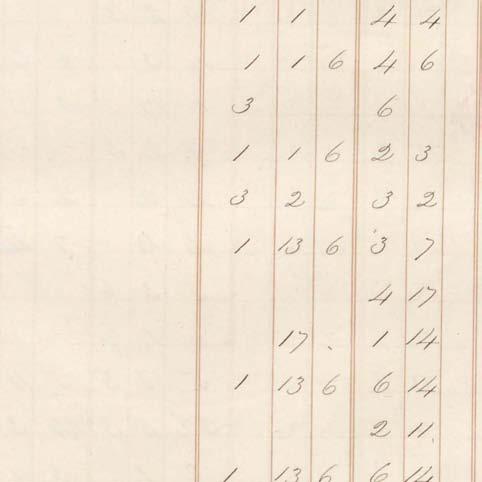 1 1 4 4
1 1 6 4 6
3 6
1 1 6 2 3
3 2 3 2
1 13 6 3 7
4 17
17 . 1 14
1 13 6 6 14
2 11.
1 13 6 6 14